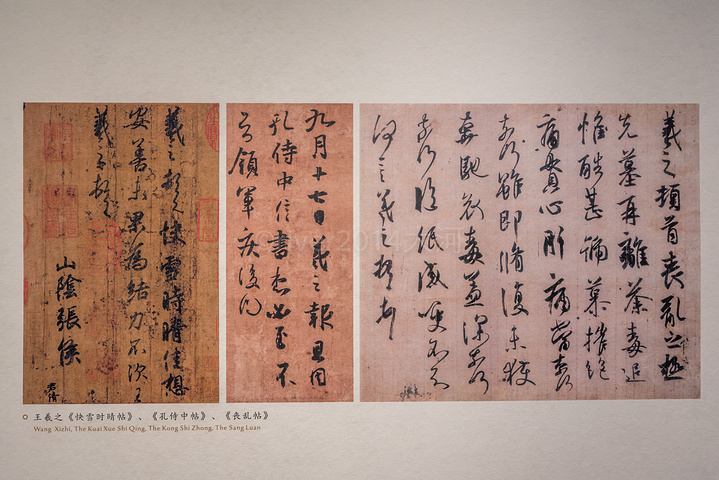 羲之頓首快雪時晴佳想
安善未果為結力不次王
羲之頓首
山陰張侯
君倩
九月十七日羲之報且因
孔侍中信書想必至不
知領軍疾後問
羲之頓首喪亂之極
先墓再離荼毒追
惟酷甚號慕摧絕
痛貫心肝痛當奈何
奈何雖即脩復未獲
奔馳哀毒益深奈何
奈何臨紙感哽不知
何言羲之頓首頓首
王羲之《快雪时晴帖》、《孔侍中帖》、《丧乱帖》
Wang Xizhi, The Kuai Xue Shi Qing, The Kong Shi Zhong, The Sang Luan